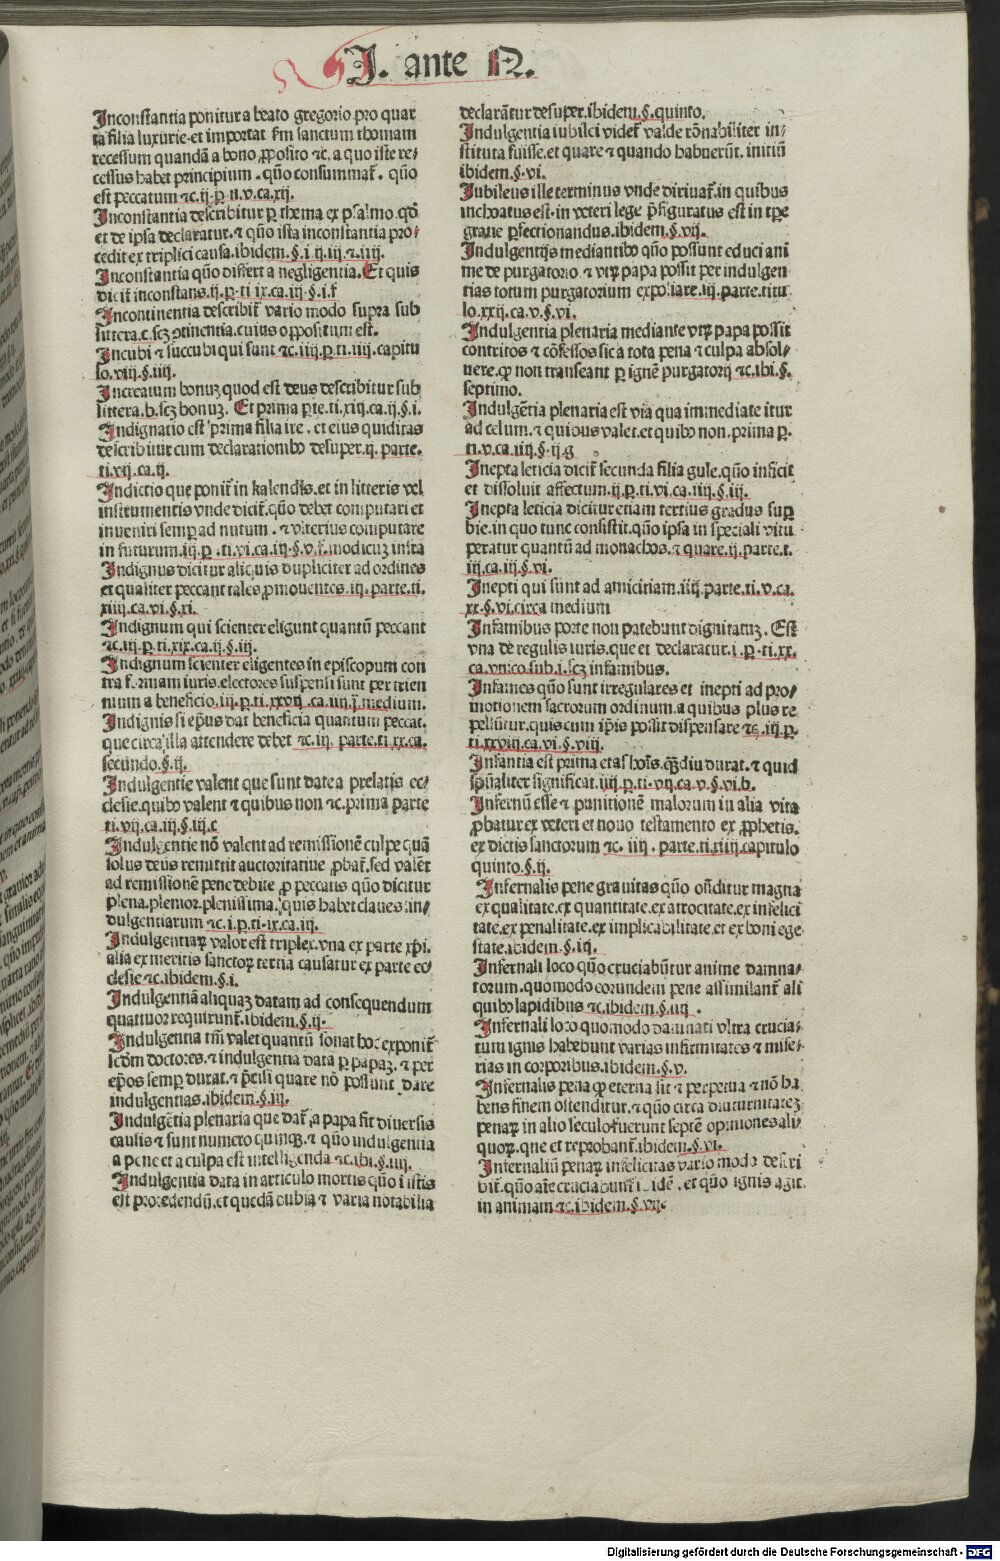 J. ante N.
Inconstantia ponitur a beato gregorio pro quar
ta filia luxurie. et importat fm sanctum thomam
recessum quandā a bono ꝓposito ⁊c. a quo iste re⸗
cessus habet principium . quō consummat̄. quō
est peccatum ⁊c. ij. p̱. ti. v. ca. xij.
Inconstantia describitur p̱ thema ex psalmo. qō
et de ipsa declaratur. ⁊ quō ista inconstantia pro⸗
cedit ex triplici causa. ibidem. §. i ij. iij ⁊. iiij.
Inconstantia quō differt a negligentia. Et quis
dicit̄ inconstans. ij. p̱. ti ix. ca. iij. §. i. f
Incontinentia describit̄ vario modo supra sub
littera. c. scꝫ ꝯtinentia. cuius oppositum est.
Incubi ⁊ succubi qui sunt ⁊c. iiij. p̱. ti. iiij. capitu
lo. viij. §. iiij.
Increatum bonuꝫ quod est deus describitur sub
littera. b. scꝫ bonuꝫ. Et prima p̱te. ti. xiij. ca. ij. §. i.
Indignatio est prima filia ire . et eius quiditas
describitur cum declarationibꝰ desuper. ij. parte.
ti. vij. ca. ij.
Indictio que ponit̄ in kalendis. et in litteris vel
instrumentis vnde dicit̄. quō debet computari et
inueniri semp̱ ad nutum . ⁊ vlterius computare
in futurum. iij. p̱ . ti. vi. ca. iij. §. v. f. modicuꝫ infra
Indignus dicitur aliquis dupliciter ad ordines
et qualiter peccant tales ꝓmouentes. iij. parte. ti.
xiiij. ca. vi. §. xi.
Indignum qui scienter eligunt quantū peccant
⁊c. iij. p̱. ti. xix. ca. ij. §. iij.
Indignum scienter eligentes in episcopum con
tra formam iuris. electores suspensi sunt per trien
nium a beneficio. iij. p̱. ti. xxvij . ca. iiij. j̄ medium.
Indignis si ep̄us dat beneficia quantum peccat.
que circa illa attendere debet ⁊c. iij. parte. ti. xx. ca.
secundo. §. ij.
Indulgentie valent que sunt date a prelatis ec⸗
clesie. quibꝰ valent ⁊ quibus non ⁊c. prima parte
ti. vij. ca. iij. §. iij. c
Indulgentie nō valent ad remissionē culpe quā
solus deus remittit auctoritatiue .ꝓbat̄. sed valēt
ad remissionē pene debite ꝓ peccatis quō dicitur
plena. plenior. plenissima. quis habet claues in⸗
dulgentiarum ⁊c. i. p̱. ti. ix. ca. iij.
Indulgentiaꝝ valor est triplex. vna ex parte xp̄i.
alia ex meritis sanctoꝝ tertia causatur ex parte ec⸗
clesie ⁊c. ibidem. §. i.
Indulgentiā aliquaꝫ datam ad consequendum
quattuor requirunt̄. ibidem. §. ij.
Indulgentia tm̄ valet quantū sonat hoc exponit̄
scdm doctores. ⁊ indulgentia data p̱ papaꝫ. ⁊ per
ep̄os semp̱ durat. ⁊ p̄cisi quare nō possunt dare
indulgentias. ibidem. §. iij.
Indulgētia plenaria que dat̄ a papa fit diuersis
causis ⁊ sunt numero quinqꝫ. ⁊ quō indulgentia
a pene et a culpa est intelligenda ⁊c. ibi. §. iiij.
Indulgentia data in articulo mortis quō i istis
est procedendū. et quedā dubia ⁊ varia notabilia
declarātur desuper. ibidem. §. quinto.
Indulgentia iubilei videt̄ valde rōnabiliter in⸗
stituta fuisse. et quare ⁊ quando habuerūt. initiū
ibidem. §. vi.
Iubileus ille terminus vnde diriuat̄. in quibus
inchoatus est. in veteri lege p̄figuratus est in tp̄e
gratie p̱fectionandus. ibidem. §. vij.
Indulgentijs mediantibꝰ quō possunt educi ani
me de purgatorio. ⁊ vtrꝝ papa possit per indulgen
tias totum purgatorium expoliare. iij. parte. titu
lo. xxij. ca. v. §. vi.
Indulgentia plenaria mediante vtrꝝ papa possit
contritos ⁊ cōfessos sic a tota pena ⁊ culpa absol⸗
uere. qꝫ non transeant p̱ ignē purgatorij ⁊c. ibi. §.
septimo.
Indulgētia plenaria est via qua immediate itur
ad celum. ⁊ quibus valet. et quibꝰ non. prima p̱.
ti. v. ca. iiij. §. ij. g
Inepta leticia dicit̄ secunda filia gule. quō inficit
et dissoluit affectum. ij. p̱. ti. vi. ca. iiij. §. iij.
Inepta leticia dicitur etiam tertius gradus sup̱
bie. in quo tunc consistit. quō ipsa in speciali vitu
peratur quantū ad monachos. ⁊ quare. ij. parte. t.
iij. ca. iij. §. vi.
Inepti qui sunt ad amicitiam. iiij. parte. ti. v. ca.
xx. §. vi. circa medium
Infamibus porte non patebunt dignitatuꝫ. Est
vna de regulis iuris. que et declaratur. i. p̱. ti. xx.
ca. vnico. sub. i. scꝫ infamibus.
Infames quō sunt irregulares et inepti ad pro⸗
motionem sacrorum ordinum. a quibus plus re
pellūtur. quis cum ip̄is possit dispensare ⁊c. iij. p̱.
ti. xxviij. ca. vi. §. viij.
Infantia est prima etas hoīs. qꝫdiu durat. ⁊ quid
sp̄ualiter significat. iiij. p̱. ti. vij. ca. v. §. vi. b.
Infernū esse ⁊ punitionē malorum in alia vita
ꝓbatur ex veteri et nouo testamento ex ꝓphetis.
ex dictis sanctorum ⁊c. iiij . parte. ti. xiiij. capitulo
quinto. §. ij.
Infernalis pene grauitas quō oñditur magna
ex qualitate. ex quantitate. ex atrocitate. ex infelici
tate. ex penalitate. ex implicabilitate. et ex boni ege
state. ibidem. §. iij.
Infernali loco quō cruciabūtur anime damna⸗
torum. quomodo eorundem pene assimilant̄ ali
quibꝰ lapidibus ⁊c. ibidem. §. iiij .
Infernali loco quomodo damnati vltra crucia⸗
tum ignis habebunt varias infirmitates ⁊ mise⸗
rias in corporibus. ibidem. §. v.
Infernalis pena qꝫ eterna sit ⁊ perpetua ⁊ nō ha
bens finem ostenditur. ⁊ quō circa diuturnitateꝫ
penaꝝ in alio seculo fuerunt septē opiniones ali⸗
quoꝝ. que et reprobant̄. ibidem. §. vi.
Infernaliū penaꝝ infelicitas vario modo descri
bit̄. quō aīe cruciabunt̄ ibidē. et quō ignis agit
in animam ⁊c. ibidem. §. vij.
Digitalisierung gefördert durch die Deutsche Forschungsgemeinschaft - DFG